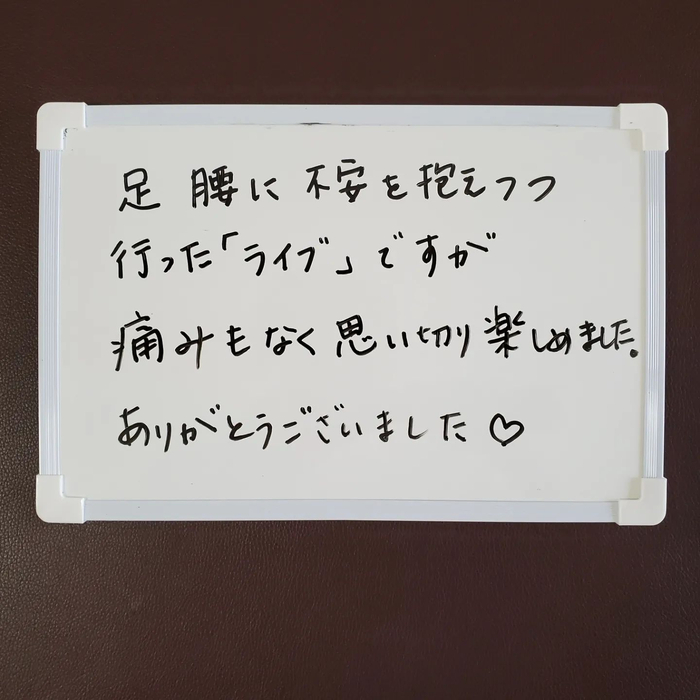 足 腰に 不安を抱えつつ
行った「ライブ」ですが
痛みもなく思い切り楽しめました。
ありがとうございました♡